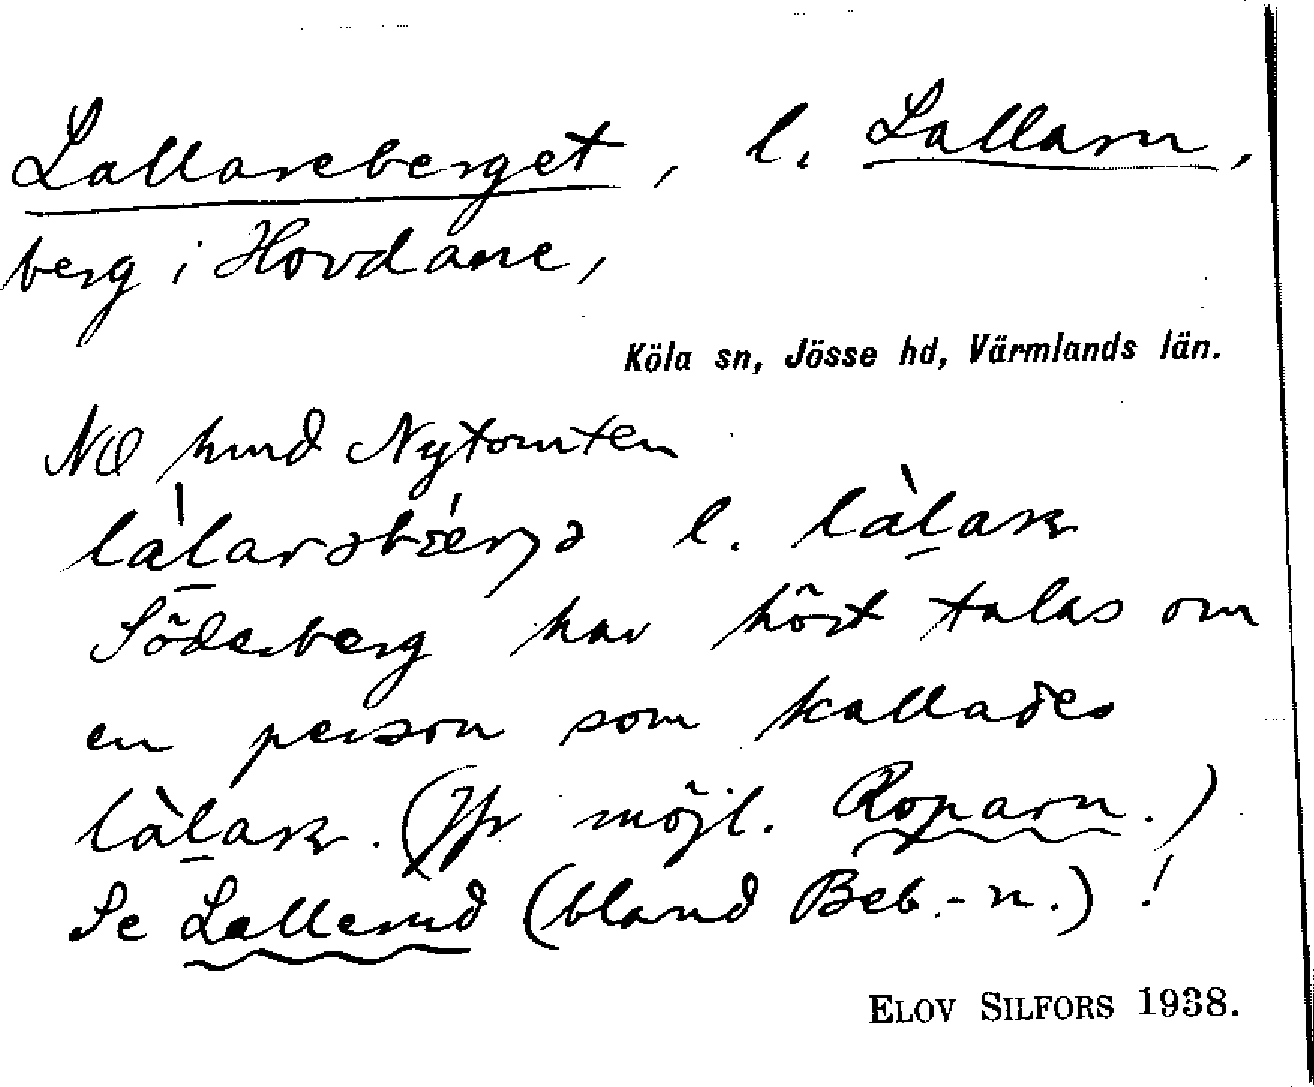 Lallareberget, l. Lallarn,
berg i Hovdane,
Köla sn, Jösse hd, Värmlands län.
NO hmd Nytomten
l. làlarn
Söderberg har hört talas om
en person som kallades
làlarn. (Jfr möjl. Roparn.)
Se Lallerud (bland Beb.-n.)!
ELOV SILFORS 1938.